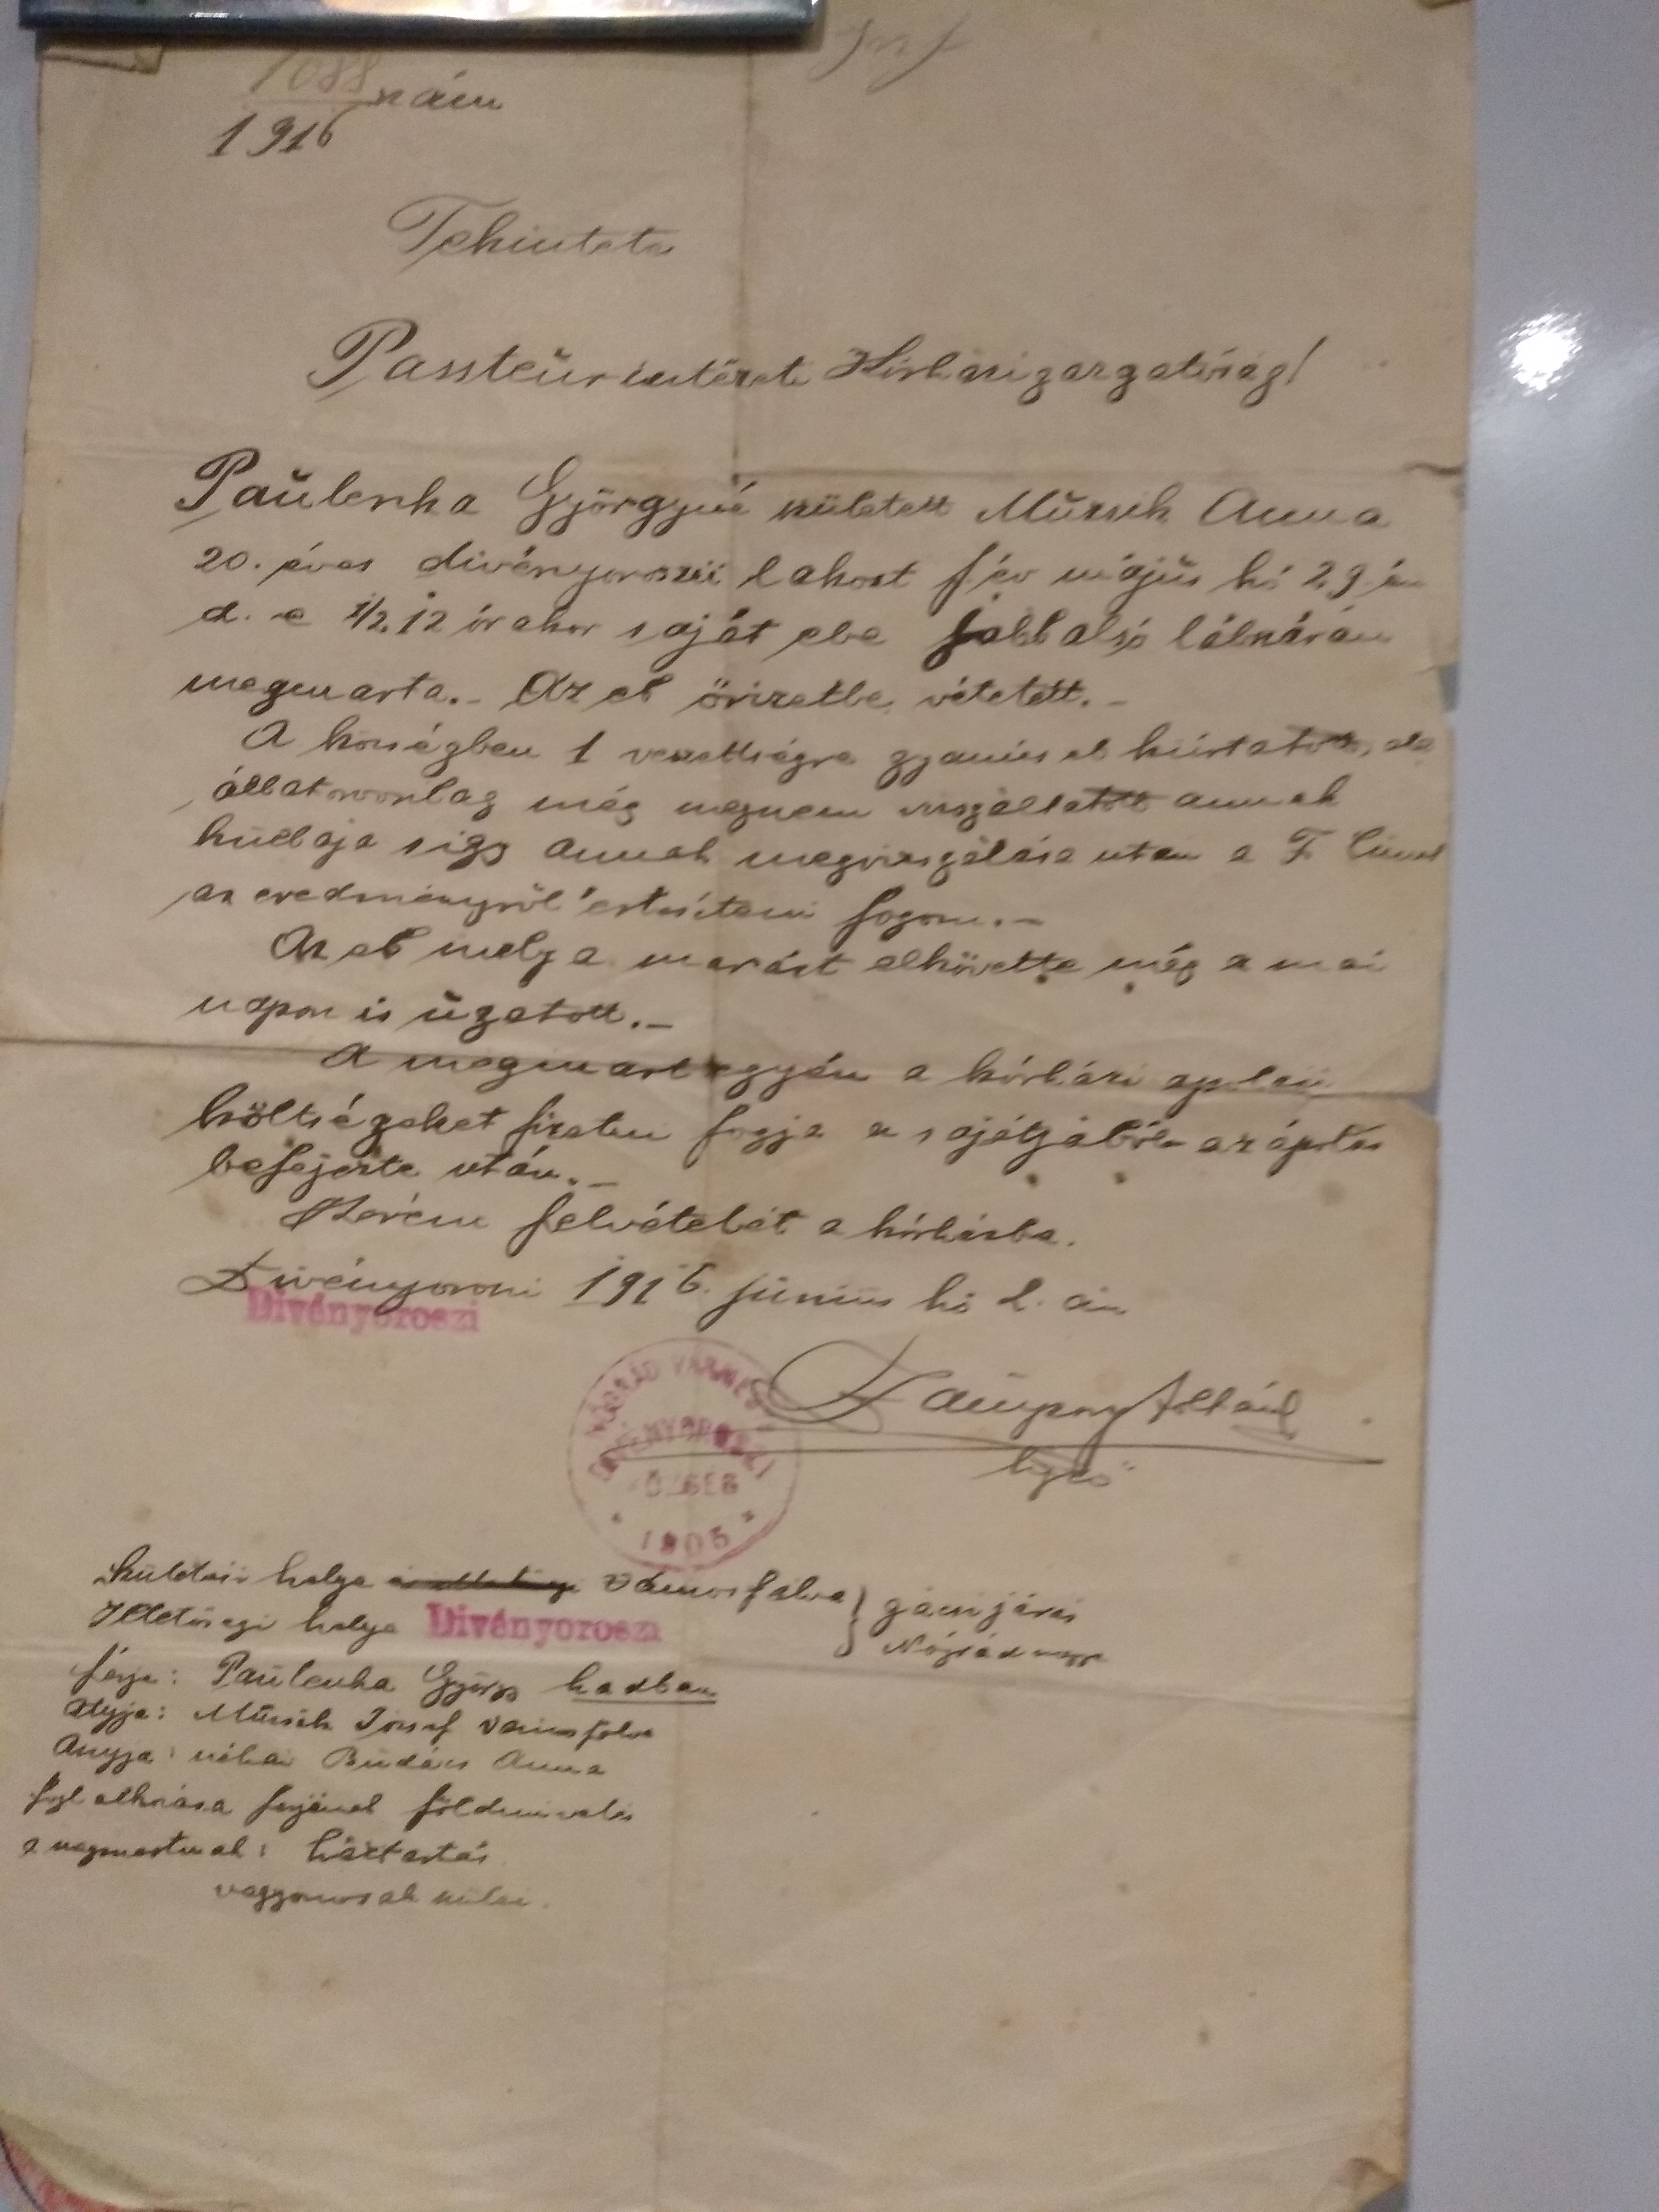 1088 szám
1916
Tekintetes
Passteur intézeti Kórházigazgatóság!
Paulenka Györgyné született Mursik Anna
20. éves divényoroszii lakost f. év május hó 29 én
d. e 1/2 12 órakor saját ebe jobb alsó lábszárán
megmarta.- Az eb őrizetbe vétetett.-
A községben 1 veszettségre gyanús eb kiirtatott, de
állatorvosilag még meg nem vizsgáltatott annak
hullája s igy annak megvizsgálása utan a T. Cimet
az eredményről értesiteni fogom.-
Az eb mely a marást elkövette még a mai
napon is ugatott.-
A megmart egyén a kórházi apolasi
költségeket fizetni fogja a sajátjából az ápolas
befejezte után.-
Kérem felvételét a kórházba.
Divényoroszi 1916. junius hó 2. án
Divényoroszi
NÓGRÁD VÁRMEGYE
DIVÉNYOROSZI
KÖZSÉG
1906
jgző
Születési helye Vámosfalva } gácsi járás
Illetőségi helye Divényoroszi Nógrádmegye
férje: Paulenka György hadban
Atyja: Mursik József Vámosfalva
Anyja: néhai Budács Anna
foglalkozása férjénel földmivelés
a megmartnak: háztartás
vagyonosak